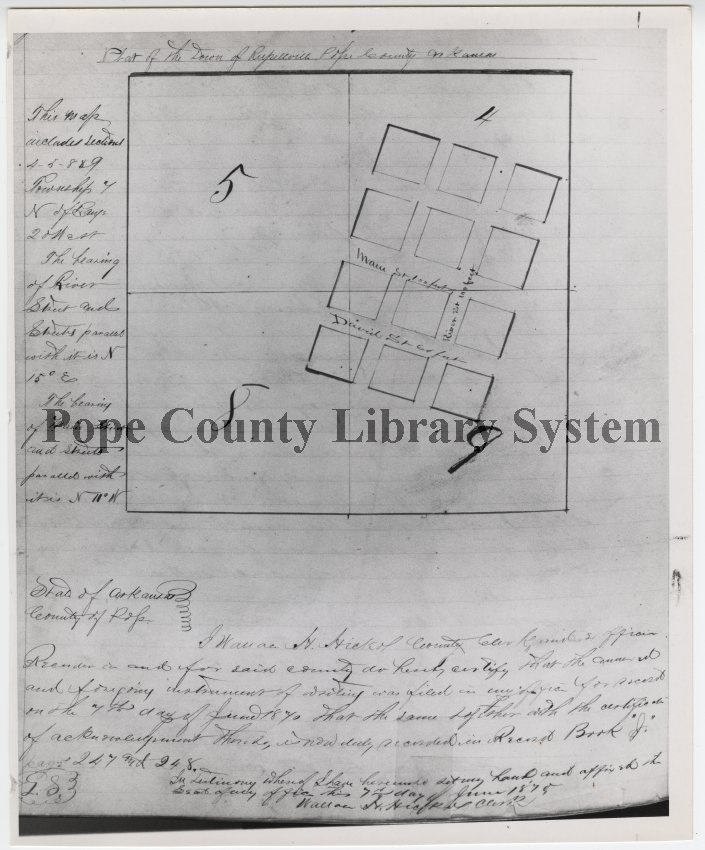 Plat of the Town of Russellville Pope County Arkansas
This map
includes sections
4-5-8 & 9
Township 7
N of Range
20 West
The bearing
of River
Street and
Streets parallel
with it is N
15° E
The bearing
of Main Street
and Streets
parallel with
it is N 71° W
5
4
8
9
Main St 80 feet
River St 60 feet
David St 60 feet
Pope County Library System
State of Arkansas
County of Pope
I Wallace H. Hickox County Clerk and ex officio
Recorder in and for said county do hereby certify that the annexed
and foregoing instrument of writing was filed in my office for record
on the 7th day of June 1875 that the same together with the certificate
of acknowledgement thereto, is now duly recorded in Record Book "J"
page 247 and 248.
In testimony whereof I have hereunto set my hand and affixed the
Seal of my office this 7th day of June 1875
Wallace H. Hickox Clerk
L.S.